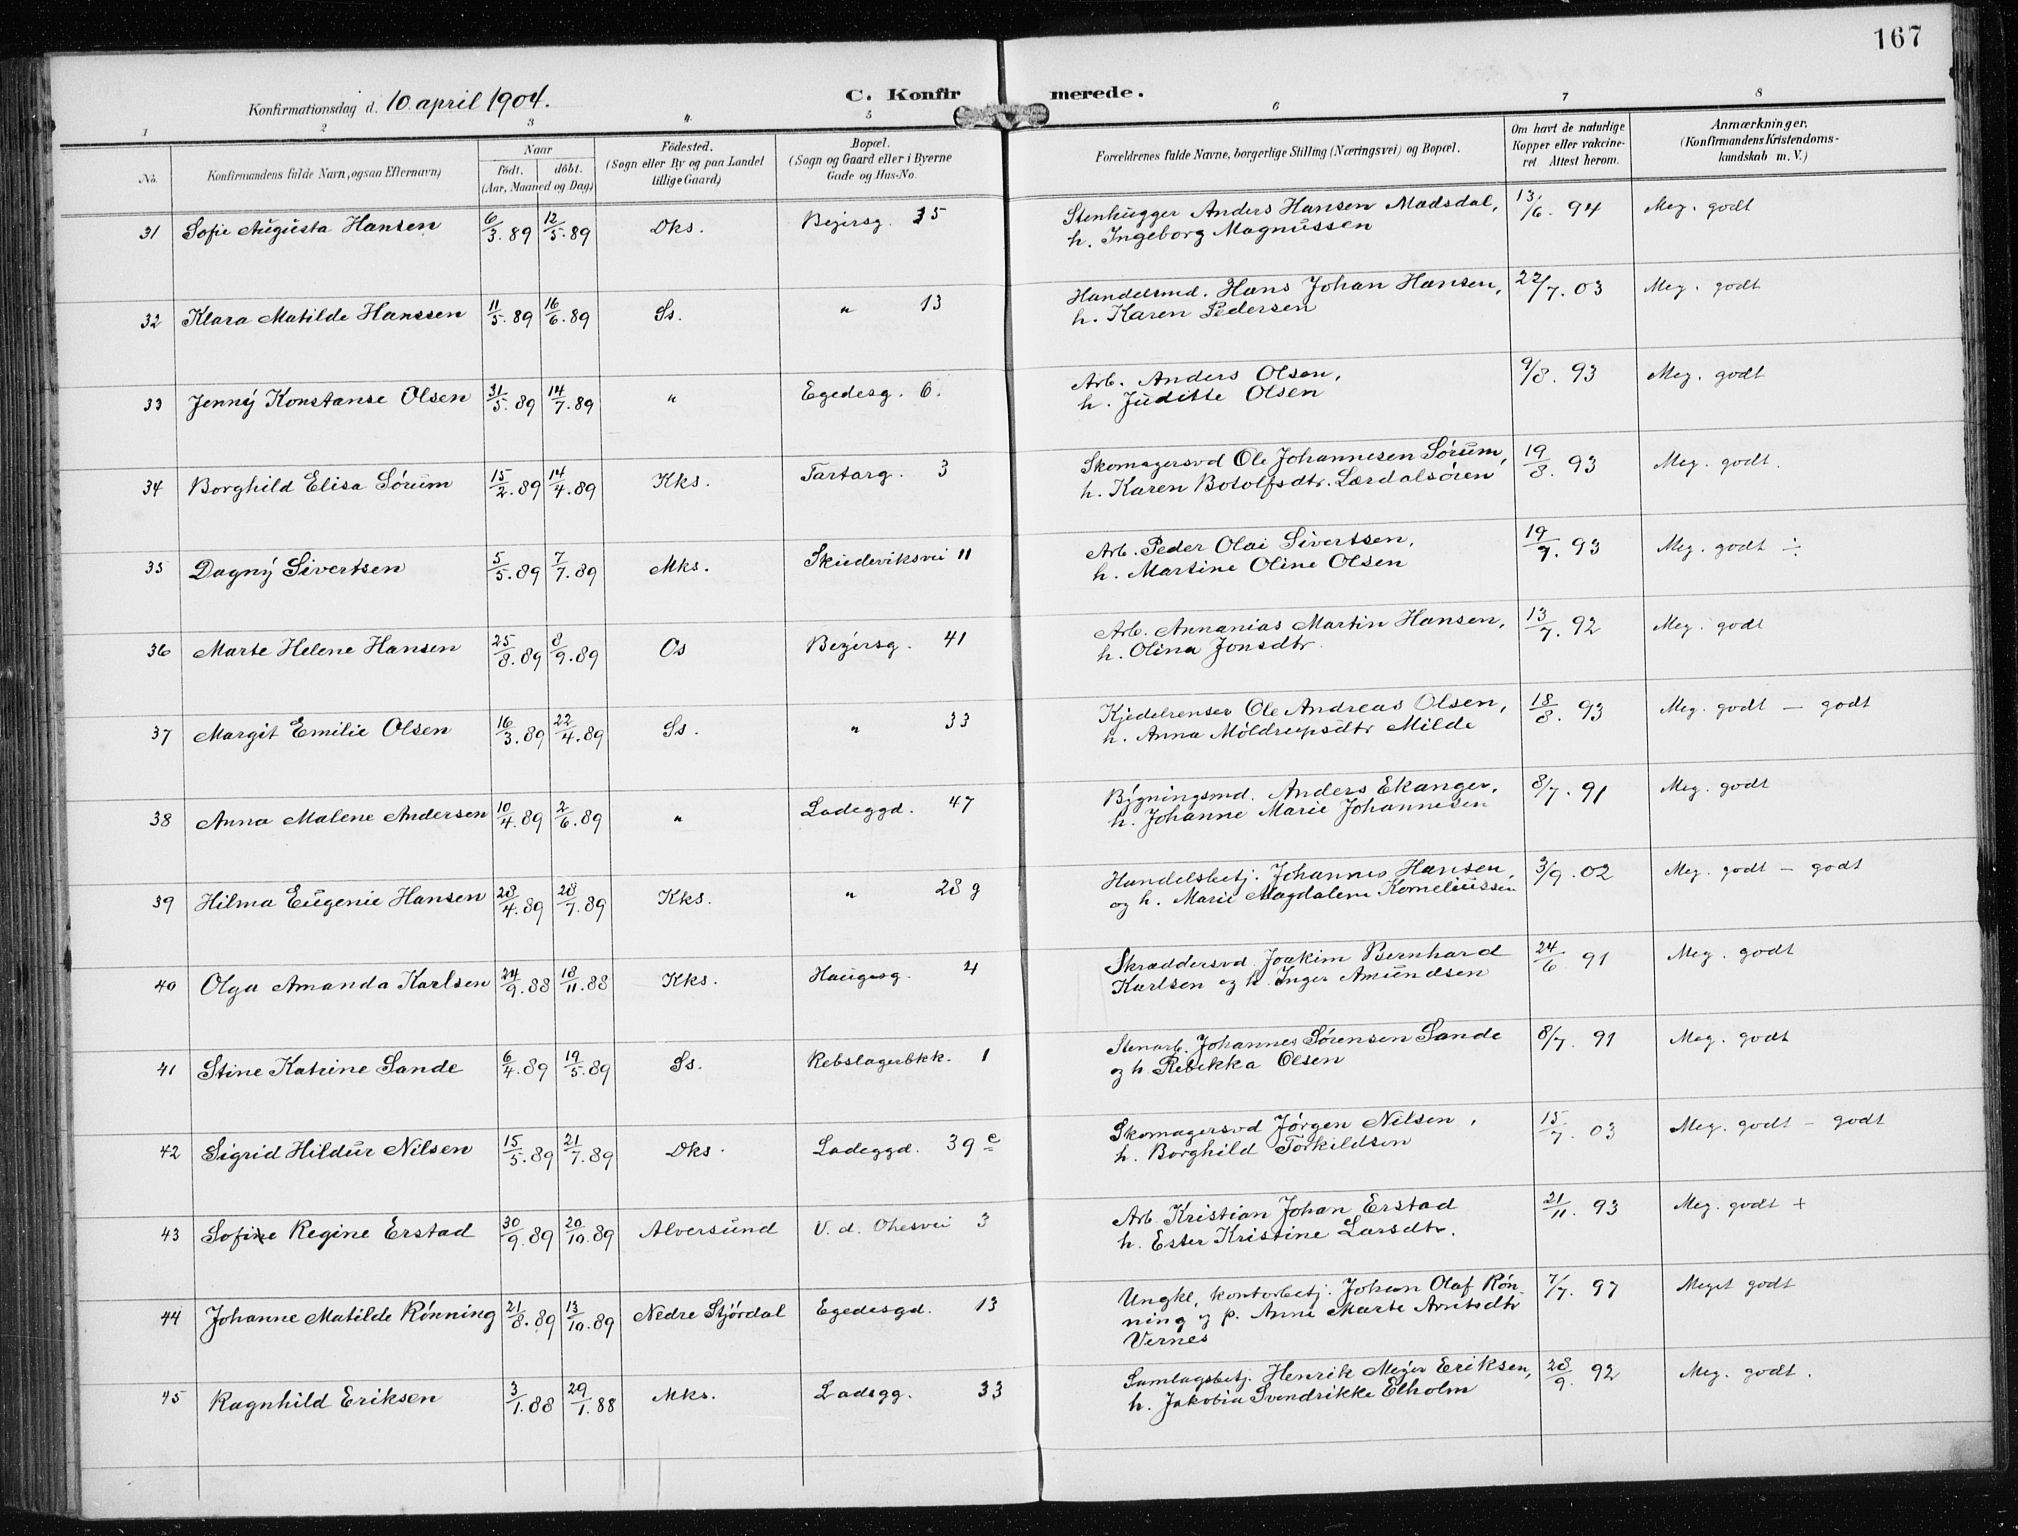 167
Konfirmationsdag d. 10 april 1904. C. Konfirmerede.
1 2 3 4 5 6 7 8
No. Konfirmandens fulde Navn, ogsaa Efternavn) Naar födt. döbt. (Aar, Maaned og Dag) Födested. (Sogn eller By og paa Landet tillige Gaard) Bopæl. (Sogn og Gaard eller i Byerne Gade og Hus-No. Forældrenes fulde Navne, borgerlige Stilling (Næringsvei) og Bopæl. Om havt de naturlige Kopper eller vakcineret Attest herom. Anmærkninger. (Konfirmandens Kristendomskundskab m. V.)
31 Sofie Augusta Hansen 6/3.89 12/5.89 Dks. Beyersg. 35 Stenhugger Anders Hansen Madsdal, 13/6. 94 Meg. godt
h. Ingeborg Magnussen
32 Klara Matilde Hanssen 11/5.89 16/6.89 Ss. " 13 Handelsmd. Hans Johan Hansen, 22/7. 03 Meg. godt
h. Karen Pedersen
33 Jenny Konstanse Olsen 31/5.89 14/7.89 " Egedesg. 6. Arb. Anders Olsen, 9/8. 93 Meg. godt
h. Juditte Olsen
34 Borghild Elisa Sörum 15/2.89 14/4.89 Kks. Tartarg. 3 Skomagersvd Ole Johannesen Sørum, 19/8. 93 Meg. godt.
h. Karen Botolfsdtr. Lærdalsören
35 Dagny Sivertsen 5/5.89 7/7.89 Mks. Skudeviksvei 11 Arb. Peder Olai Sivertsen, 19/7. 93 Meg. godt ÷
h. Martine Oline Olsen
36 Marte Helene Hansen 25/8.89 8/9.89 Os Beyersg. 41 Arb. Annanias Martin Hansen, 13/7. 92 Meg. godt
h. Olina Jonsdtr.
37 Margit Emilie Olsen 16/3.89 22/4.89 Ss. " 33 Kjedelrenser Ole Andreas Olsen, 18/8. 93 Meg. godt – godt
h. Anna Möldrupsdtr Milde
38 Anna Malene Andersen 10/4.89 2/6.89 " Ladeggd. 47 Bygningsmd. Anders Ekanger, 8/7. 91 Meg. godt
h. Johanne Marie Johannesen
39 Hilma Eugenie Hansen 28/4.89 28/7.89 Kks. " 28 g Handelsbetj. Johannes Hansen, 3/9. 02 Meg. godt – godt
og h. Marie Magdalene Korneliussen
40 Olga Amanda Karlsen 24/9.88 18/11.88 Kks. Haugesg. 4 Skræddersvd Joakim Bernhard 24/6 91 Meg. godt
Karlsen og h. Inger Amundsen
41 Stine Katrine Sande 6/4.89 19/5.89 Ss. Rebslagerbkk. 1 Stenarb. Johannes Sørensen Sande 8/7. 91 Meg. godt
og h. Rebekka Olsen
42 Sigrid Hildur Nilsen 15/5.89 21/7.89 Dks. Ladeggd. 39 e Skomagersvd Jørgen Nilsen, 15/7. 03 Meg. godt – godt
h. Borghild Torkildsen
43 Sofine Regine Erstad 30/9.89 20/10.89 Alversund V. d. Ohesvei 3 Arb. Kristian Johan Erstad 21/11. 93 Meg. godt +
h. Ester Kristine Larsdtr.
44 Johanne Matilde Rönning 21/8.89 13/10.89 Nedre Stjördal Egedesgd. 13 Ungkl, kontorbetj. Johan Olaf Rön- 7/7. 97 Meget godt
ning og p. Anne Marte Arntsdtr
Vernes
45 Ragnhild Eriksen 3/1.88 29/1.88 Mks. Ladegg. 33 Samlagsbetj. Henrik Meyer Eriksen, 28/9. 92 Meg. godt.
h. Jakobia Svendrikke Elholm